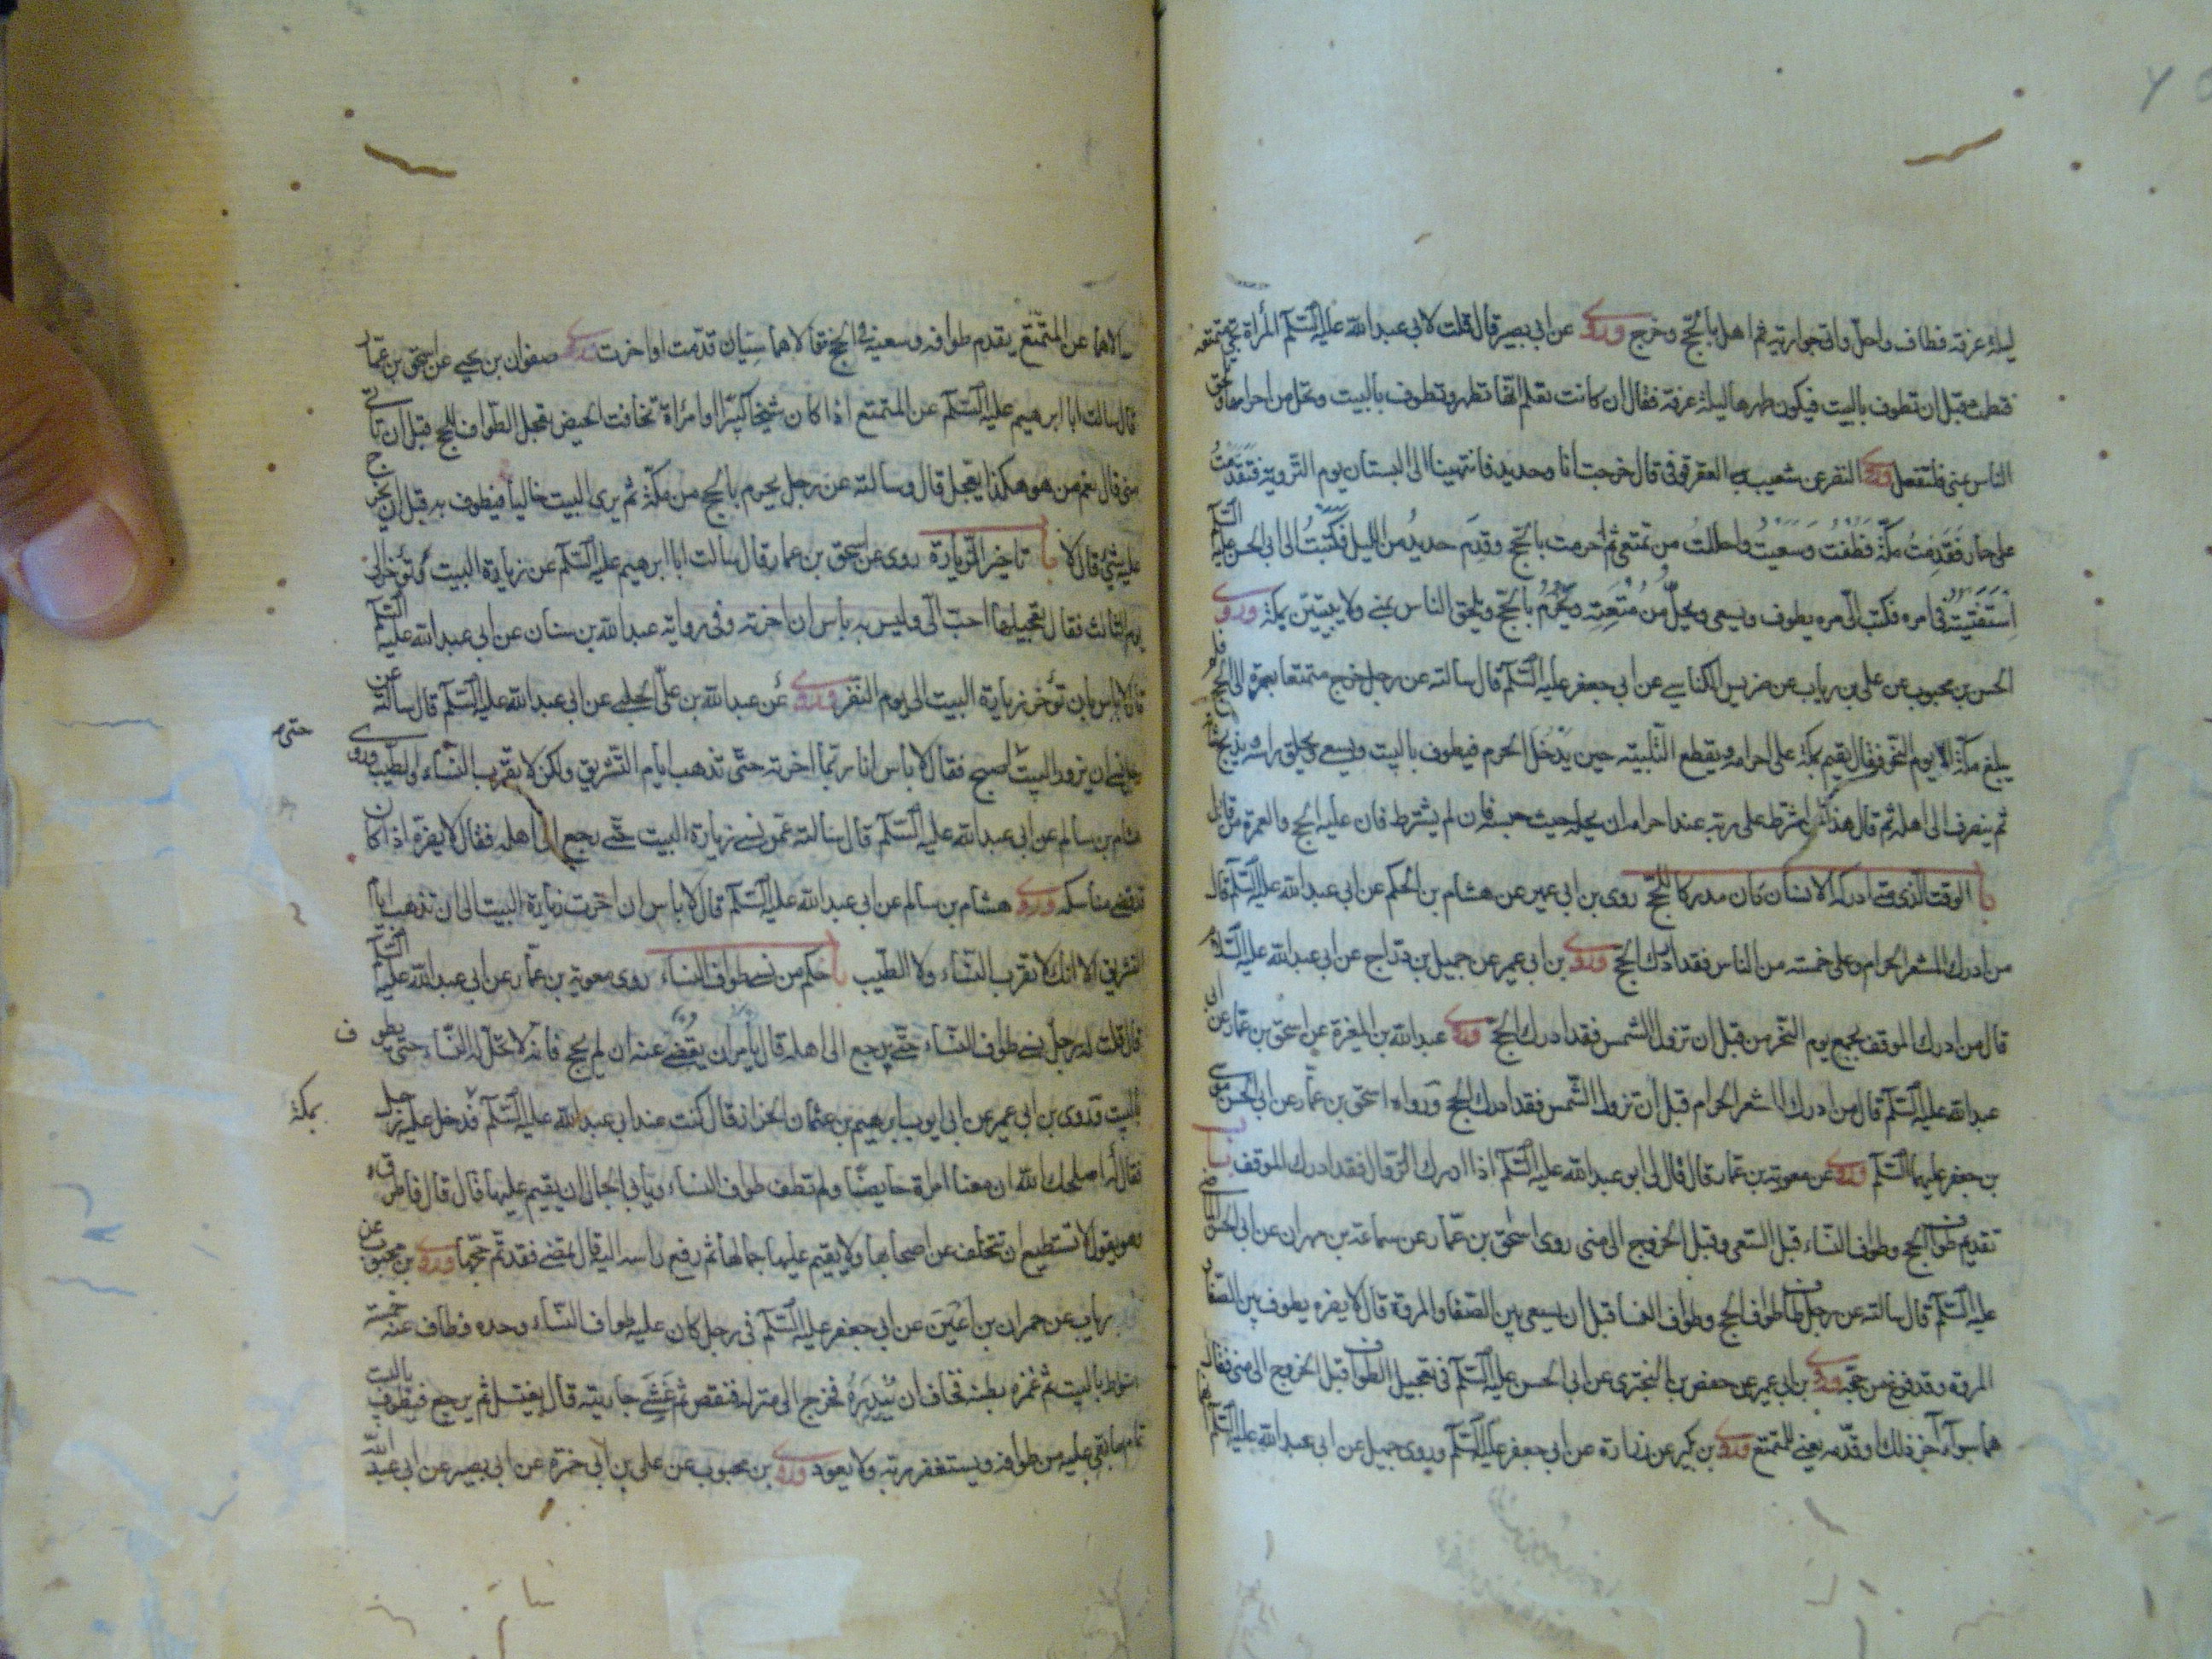 ليلة عرفة فطاف واحل واتى جواريه ثم اهل بالحج وخرج وروى عن ابي بصير قال قلت لابي عبد الله عليه السلم المرأة تجئ متمتعة
فتطمث قبل ان تطوف بالبيت فيكون طهرها ليلة عرفة فقال ان كانت تعلم انها تطهر وتطوف بالبيت وتحل من احرامها وتلحق
الناس بمنى فلتفعل وروى النضر عن شعيب العقرقوفي قال خرجت انا وحديد فانتهينا الى البستان يوم التروية فتقدمت
على حمار فقدمت مكة فطفت وسعيت واحللت من تمتعي ثم احرمت بالحج وقدم حديد من الليل فكتبت الى ابي الحسن عليه السلم
استفتيته في امره فكتب الى مره يطوف ويسعى ويحل من متعته ويحرم بالحج ويلحق الناس بمنى ولا يبيتن بمكة وروى
الحسن بن محبوب عن علي بن رياب عن ضريس الكناسي عن ابي جعفر عليه السلم قال سالته عن رجل خرج متمتعا بعمرة الى الحج فلم
يبلغ مكة الا يوم النحر فقال يقيم بمكة على احرامه ويقطع التلبية حين يدخل الحرم فيطوف بالبيت ويسعى ويحلق راسه ويذبح شاته
ثم ينصرف الى اهله ثم قال هذا لمن اشترط على ربه عند احرامه ان يحله حيث حبسه فان لم يشترط فان عليه الحج والعمرة من قابل
باب الوقت الذي متى ادركه الانسان كان مدركا للحج روى بن ابي عمير عن هشام بن الحكم عن ابي عبد الله عليه السلم قال
من ادرك المشعر الحرام وعلى خمسة من الناس فقد ادرك الحج وروى بن ابي عمير عن جميل بن دراج عن ابي عبد الله عليه السلم
قال من ادرك الموقف بجمع يوم النحر من قبل ان تزول الشمس فقد ادرك الحج وروى عبد الله بن المغيرة عن اسحق بن عمار عن ابي
عبد الله عليه السلم قال من ادرك المشعر الحرام قبل ان تزول الشمس فقد ادرك الحج ورواه اسحق بن عمار عن ابي الحسن موسى
بن جعفر عليهما السلم وروى عن معوية بن عمار قال قال لي ابو عبد الله عليه السلم اذا ادرك الزوال فقد ادرك الموقف باب
تقديم طواف الحج وطواف النساء قبل السعي وقبل الخروج الى منى روى اسحق بن عمار عن سماعة بن مهران عن ابي الحسن
عليه السلم قال سالته عن رجل طاف طواف الحج وطواف النساء قبل ان يسعى بين الصفا والمروة قال لا يضره يطوف بين الصفا
المروة وقد فرغ من حجه وروى بن ابي عمير عن حفص بن البختري عن ابي الحسن عليه السلم في تعجيل الطواف قبل الخروج الى منى فقال
هما سواء اخر ذلك او قدمه يعني للمتمتع وروى بن بكير عن زرارة عن ابي جعفر عليه السلم وروى جميل عن ابي عبد الله عليه السلم
سالاهما عن المتمتع يقدم طوافه وسعيه في الحج فقالا هما سيان قدمت او اخرت وروى صفوان بن يحيى عن اسحق بن عمار
قال سالت ابا ابرهيم عليه السلم عن المتمتع اذا كان شيخا كبيرا او امراة تخاف الحيض تعجل الطواف للحج قبل ان تاتى
منى قال نعم من هو هكذا يعجل قال وسالته عن رجل يحرم بالحج من مكة ثم يرى البيت خاليا فيطوف به قبل ان يخرج
عليه شئ قال لا باب تاخير الزيارة روى عن اسحق بن عمار قال سالت ابا ابرهيم عليه السلم عن زيارة البيت تؤخر الى
يوم الثالث فقال تعجيلها احب الي وليس به باس ان اخرته وفي رواية عبد الله بن سنان عن ابي عبد الله عليه السلم
قال لا باس بان تؤخر زيارة البيت الى يوم النفر وروى عن عبد الله بن علي الحلبي عن ابي عبد الله عليه السلم قال سالته عن
رجل نسي ان يزور البيت حتى اصبح فقال لا باس انا ربما اخرته حتى تذهب ايام التشريق ولكن لا يقرب النساء الطيب وروى
هشام بن سالم عن ابي عبد الله عليه السلم قال سالته عمن نسي زيارة البيت حتى رجع الى اهله فقال لا يضره اذا كان
قد قضى مناسكه وروى هشام بن سالم عن ابي عبد الله عليه السلم قال لا باس ان اخرت زيارة البيت الى ان تذهب ايام
التشريق الا انك لا تقرب النساء ولا الطيب باب حكم من نسي طواف النساء روى معوية بن عمار عن ابي عبد الله عليه السلم
قال قلت له رجل نسي طواف النساء حتى يرجع الى اهله قال يامر ان يقضى عنه ان لم يحج فانه لا تحل له النساء حتى يطوف
بالبيت وروى بن ابي عمير عن ابي ايوب ابرهيم بن عثمان الخزاز قال كنت عند ابي عبد الله عليه السلم بمكة فدخل عليه رجل
فقال اصلحك الله ان معنا امراة حايضا ولم تطف طواف النساء ويابى الجمال ان يقيم عليها قال قال فاطرق
وهو يقول لا تستطيع ان تتخلف عن اصحابها ولا يقيم عليها جمالها ثم رفع راسه اليه فقال تمضى فقد تم حجها وروى بن محبوب عن
رياب عن حمران بن اعين عن ابي جعفر عليه السلم في رجل كان عليه طواف النساء وحده فطاف عنه خمسة
اشواط بالبيت ثم غمزه بطنه فخاف ان يبدره فخرج الى منزله فنقض ثم غشى جاريته قال يغتسل ثم يرجع فيطوف بالبيت
تمام ما بقي عليه من طوافه ويستغفر ربه ولا يعود وروى بن محبوب عن علي بن ابي حمزة عن ابي بصير عن ابي عبد الله